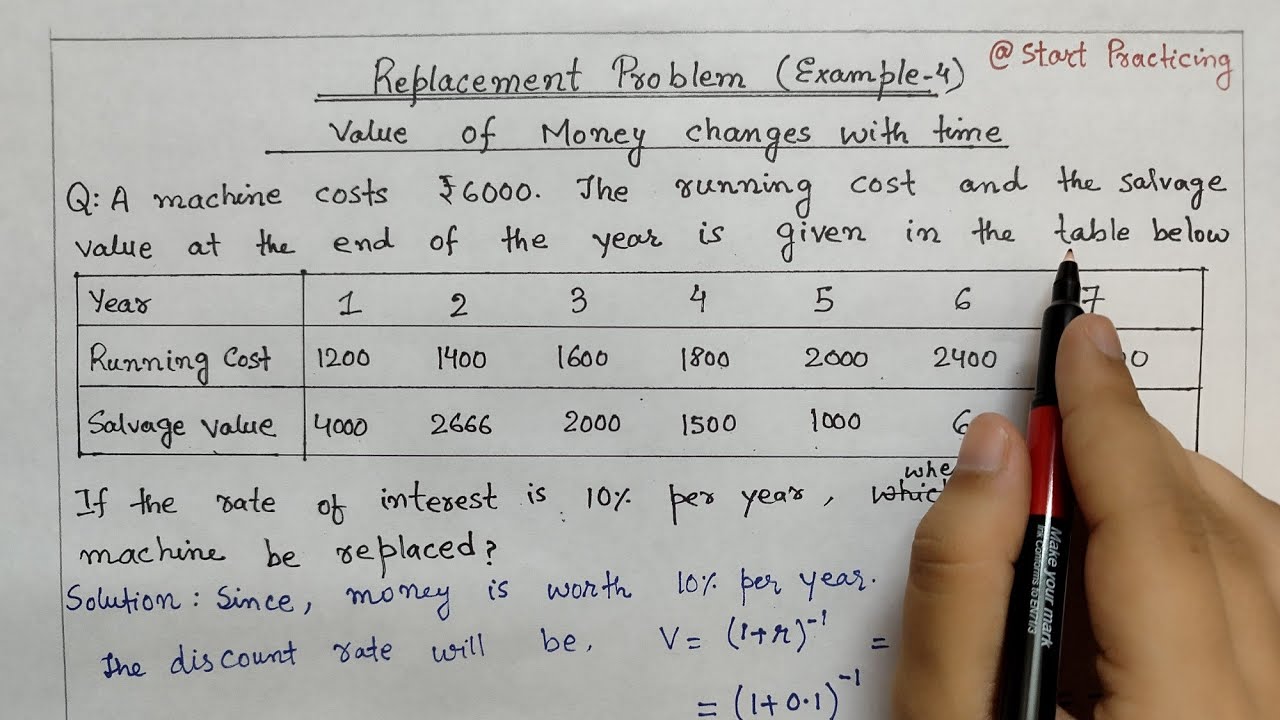 @ Start Practicing
Replacement Problem (Example-4)
Value of Money changes with time
Q: A machine costs ₹6000. The running cost and the salvage
value at the end of the year is given in the table below
Year 1 2 3 4 5 6 7
Running Cost 1200 1400 1600 1800 2000 2400
Salvage value 4000 2666 2000 1500 1000
If the rate of interest is 10% per year,
machine be replaced?
Solution: Since, money is worth 10% per year.
The discount rate will be, V = (1+r)⁻¹ =
= (1+0.1)⁻¹
Make your mark